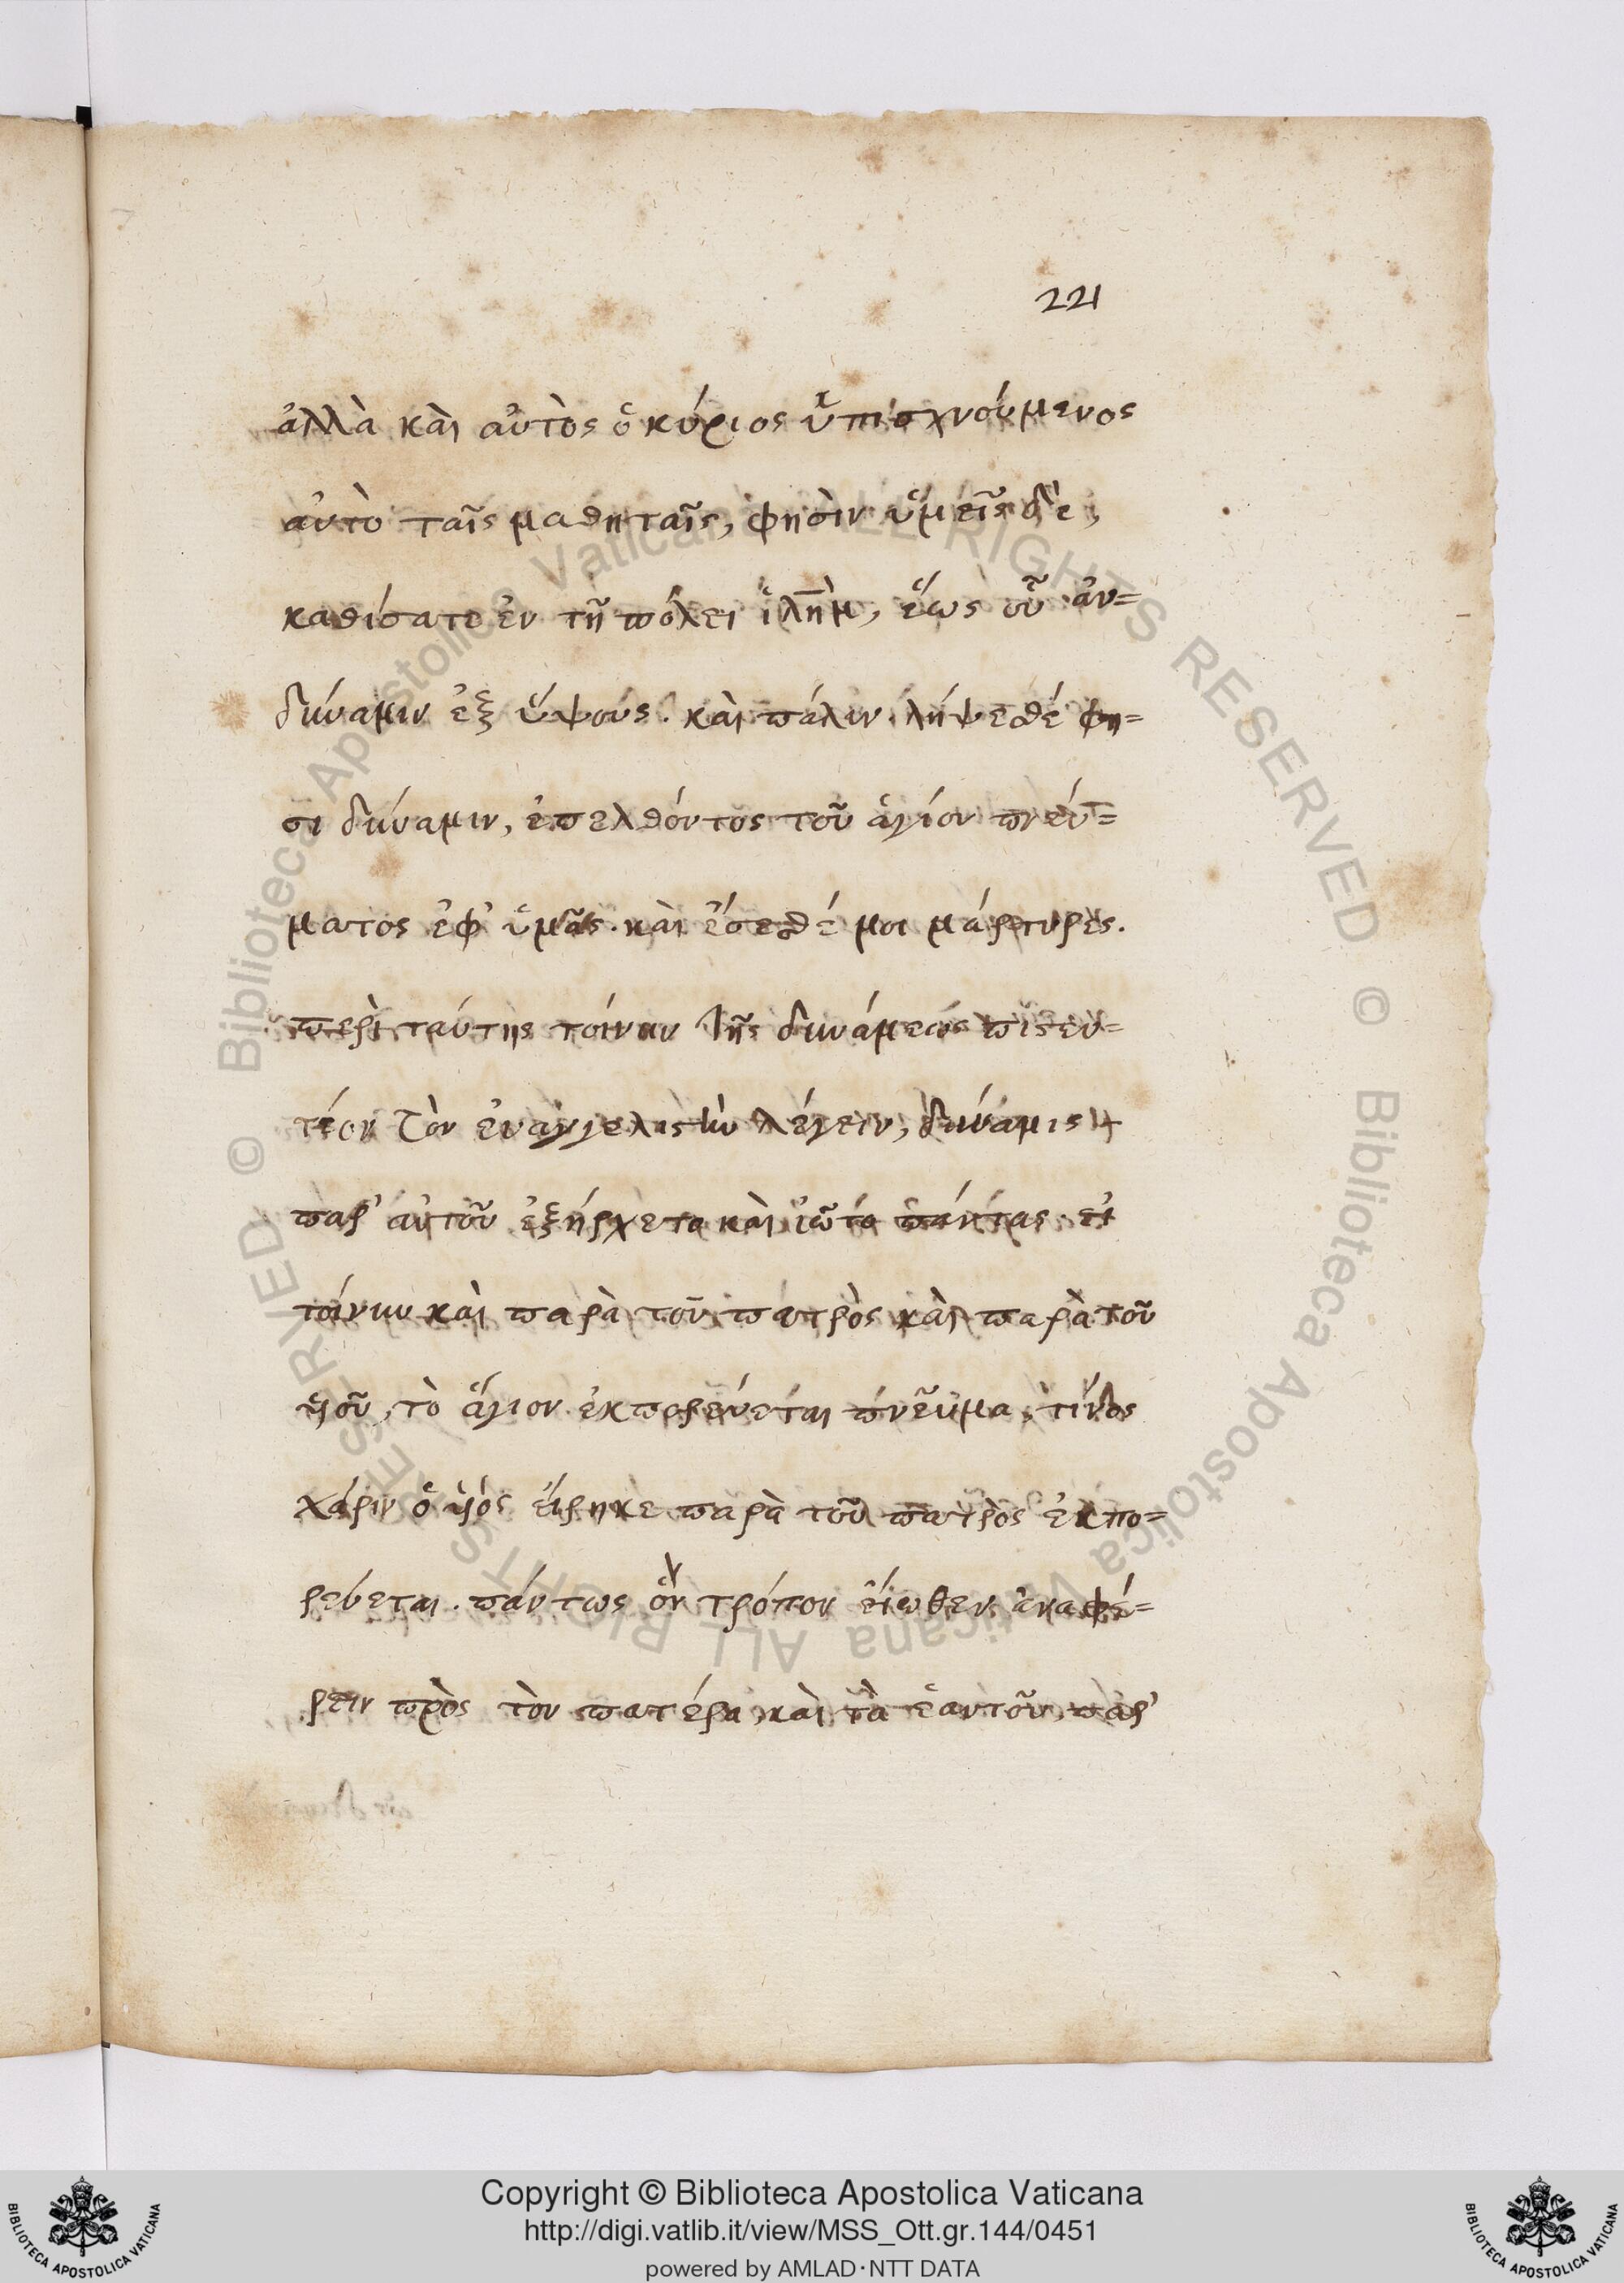 221
ἀλλὰ καὶ αὐτὸς ὁ κύριος ὑπισχνούμενος
αὐτὸ ταῖς μαθηταῖς, φησὶν ὑμεῖς δὲ,
καθίσατε ἐν τῇ πόλει ἱλὴμ, ἕως οὗ ἀν=
δύναμιν ἐξ ὕψους. καὶ πάλιν. λήψεσθέ φη=
σι δύναμιν, ἐπελθόντος τοῦ ἁγίου πνεύ=
ματος ἐφ' ὑμᾶς. καὶ ἔσεσθέ μοι μάρτυρες.
περὶ ταύτης τοίνυν τῆς δυνάμεως πιστευ=
τέον τὸν εὐαγγελιστὴν λέγειν, δύναμις
παρ' αὐτοῦ ἐξήρχετο καὶ ἰῶτο πάντας. εἰ
τοίνυν καὶ παρὰ τοῦ πατρὸς καὶ παρὰ τοῦ
υἱοῦ, τὸ ἅγιον ἐκπορεύεται πνεῦμα, τίνος
χάριν ὁ υἱός εἴρηκε παρὰ τοῦ πατρὸς ἐκπο=
ρεύεται. πάντως ὃν τρόπον εἴωθεν ἀναφέ=
ρειν πρὸς τὸν πατέρα, καὶ τὰ ἑαυτοῦ, παρ'
© Biblioteca Apostolica Vaticana ALL RIGHTS RESERVED
© Biblioteca Apostolica Vaticana ALL RIGHTS RESERVED
Copyright © Biblioteca Apostolica Vaticana
http://digi.vatlib.it/view/MSS_Ott.gr.144/0451
powered by AMLAD·NTT DATA
BIBLIOTECA APOSTOLICA VATICANA
BIBLIOTECA APOSTOLICA VATICANA